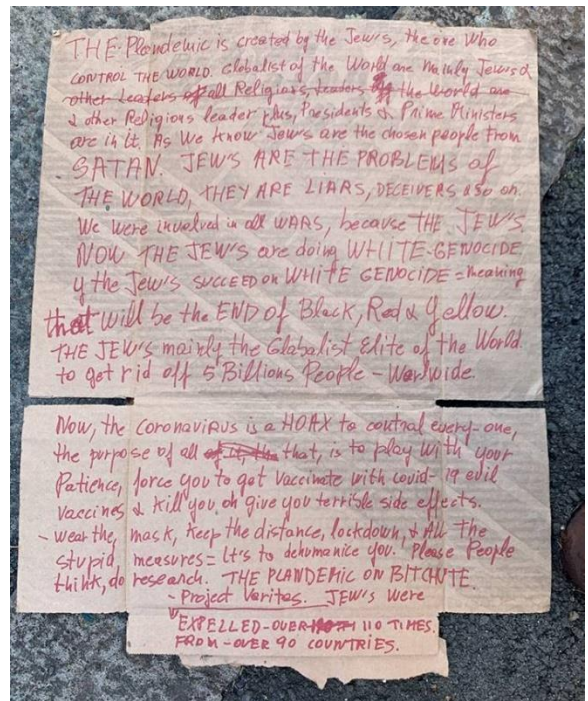 THE Plandemic is created by the Jew's, the one Who
CONTROL THE WORLD. Globalist of the World are Mainly Jew's &
other Leaders of all Religions, Leaders of the World are
& other Religious leader plus, Presidents & Prime Ministers
are in it. As We Know Jew's are the chosen people from
SATAN. JEW'S ARE THE PROBLEMS of
THE WORLD, THEY ARE LIARS, DECEIVERS & so on.
We were involved in all WARS, because THE JEW'S.
NOW THE JEW'S are doing WHITE-GENOCIDE
y the Jew's SUCCEED ON WHITE GENOCIDE = meaning
that will be the END of Black, Red & Yellow.
THE JEW'S mainly the Globalist Elite of the World.
to get rid off 5 Billions People - Worlwide.
Now, the CoronaviRus is a HOAX to control every-one,
the purpose of all that, is to play with your
Patience, force you to get vaccinate with covid-19 evil
vaccines & kill you, or give you terrible side effects.
- wear the, mask, Keep the distance, lockdown, & All The
stupid measures = It's to dehumanice you. Please People
think, do research. THE PLANDEMIC ON BITCHUTE.
- Project Veritas. JEW'S WERE
EXPELLED-OVER 110 TIMES.
FROM-OVER 90 COUNTRIES.